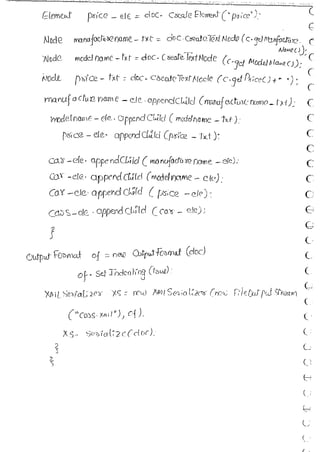 Element price - ele = doc. Create Element ("price");
Node manufacturename - txt = doc. CreateTextNode (c.getManufacture
Name());
Node model name - txt = doc. CreateTextNode (c.get ModelName());
Node price - txt = doc. CreateTextNode (c.getPrice() + " ");
manufacture name - ele. appendChild (manufacturename - txt);
modelname - ele. appendChild (modelname - txt);
price - ele. appendChild (price - txt);
car - ele. appendChild (manufacture name - ele);
car - ele. appendChild (modelname - ele);
car - ele. appendChild (price - ele);
cars - ele. appendChild (car - ele);
}
Output Format of = new OutputFormat (doc)
of. Set Indenting (true)
XMLSerializer xs = new XMLSerializer (new FileOutput Stream
("cars.xml"), of);
xs. Serialize (doc);
}
}